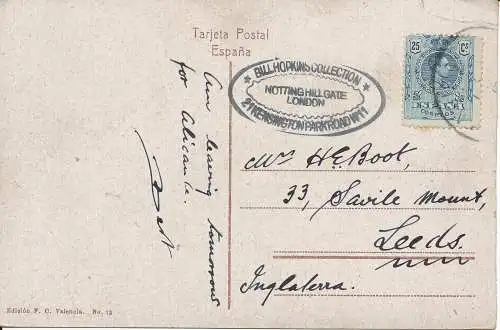 Tarjeta Postal
España
BILL HOPKINS COLLECTION
NOTTING HILL GATE
LONDON
21 KENSINGTON PARK ROAD W11
25 Cs
CORREOS
Am leaving tomorrow
for Alicante.
Mrs H E Boot,
33, Savile Mount,
Leeds.
Inglaterra.
Edición F. C. Valencia. No. 13